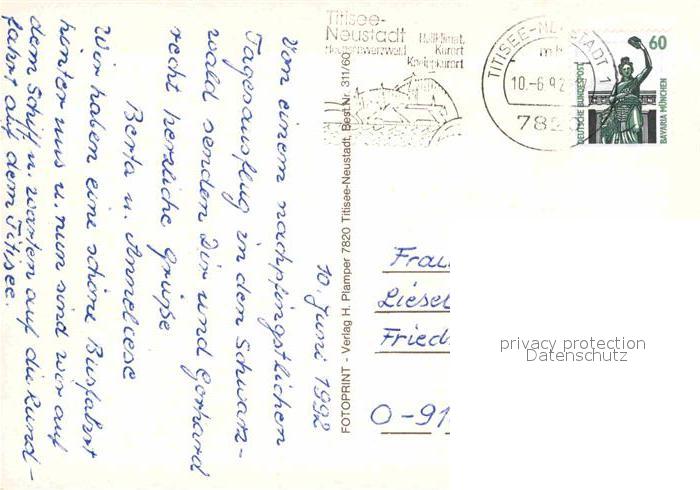 Titisee-
Neustadt
Heilklimat.
Hochschwarzwald Kurort
Kneippkurort
TITISEE-NEUSTADT 1
mb
10.-6.92
782
60
DEUTSCHE BUNDESPOST
BAYARIA MÜNCHEN
10. Juni 1992
Von einem nachpfingstlichen
Tagesausflug in den Schwarz-
wald senden Dir und Gerhard
recht herzliche Grüße
Berta u. Anneliese
Wir haben eine schöne Busfahrt
hinter uns u. nun sind wir auf
dem Schiff u. warten auf die Rund-
fahrt auf dem Titisee.
FOTOPRINT - Verlag H. Plamper 7820 Titisee-Neustadt, Best.Nr. 311/60
Frau
Liesel
Fried
O-91
privacy protection
Datenschutz